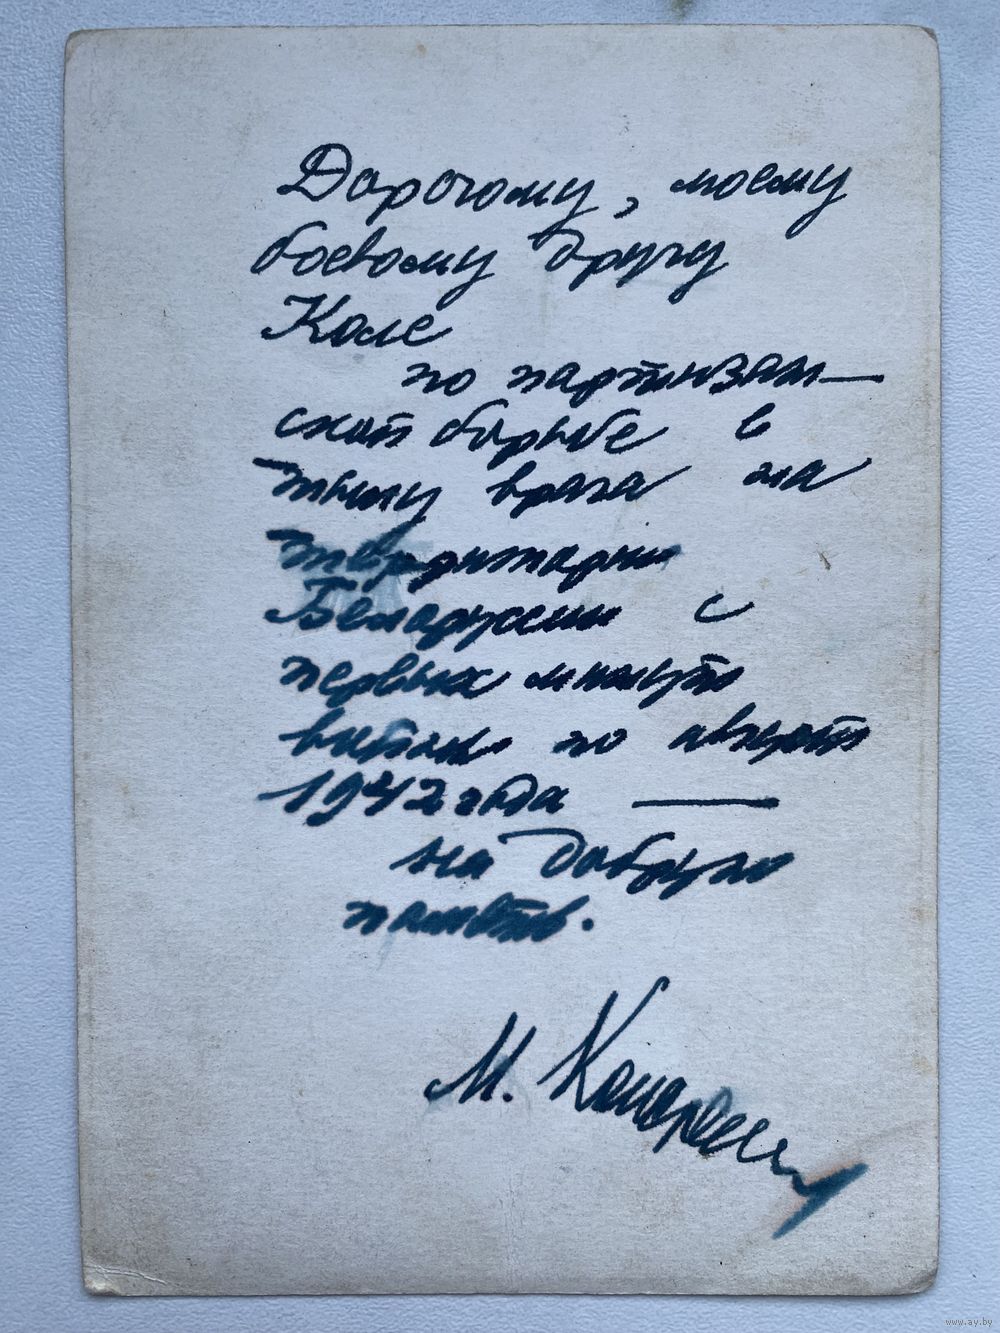 Дорогому, моему
боевому другу
Коле
по партизан—
ской борьбе в
тылу врага на
территории
Белоруссии с
первых минут
войны по август
1942 года —
на добрую
память.
М.
www.ay.by